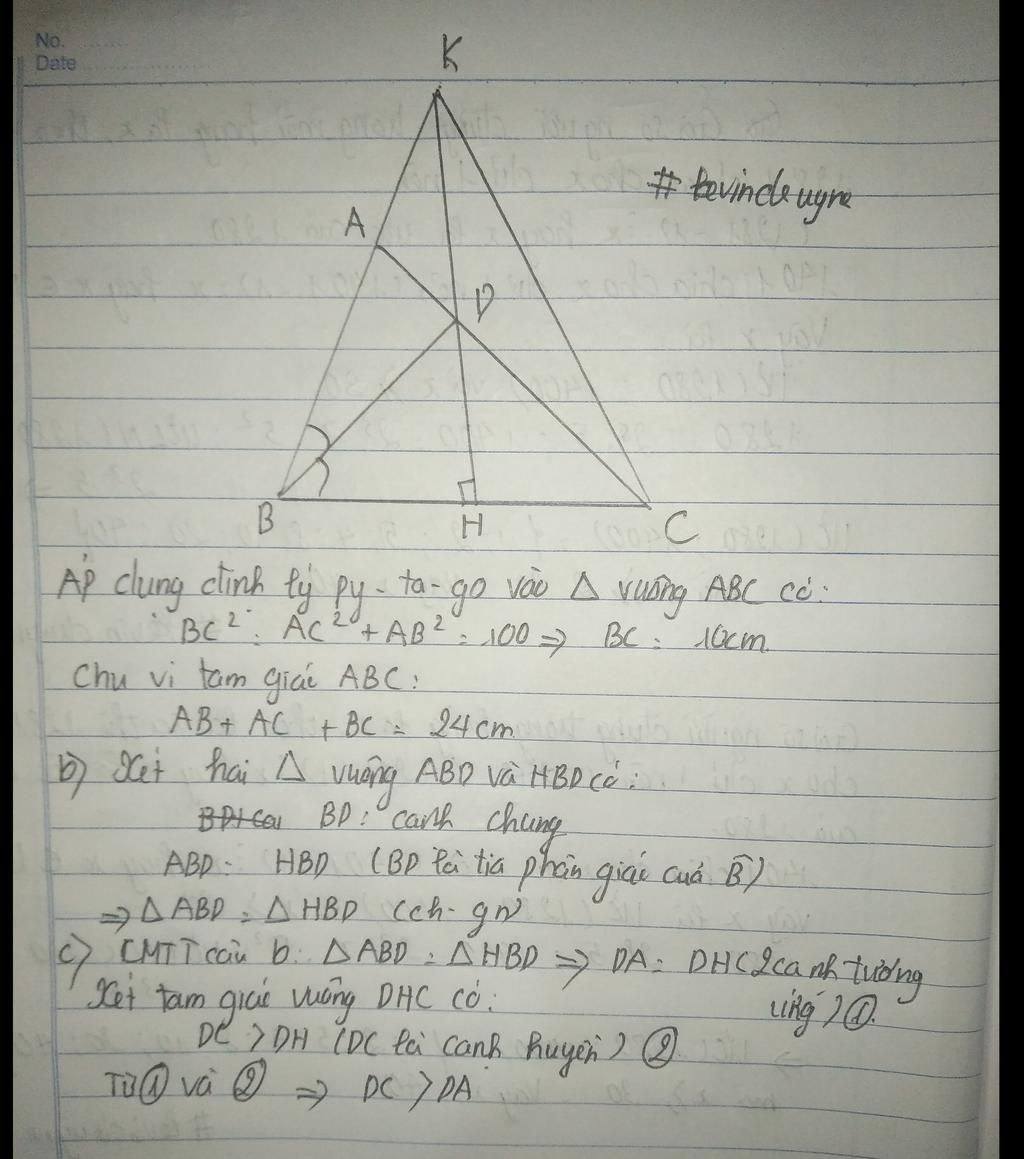 No.
Date
K
# kevindeuyne
A
D
B
H
C
Áp dụng định lý py-ta-go vào Δ vuông ABC có:
BC² = AC² + AB² = 100 => BC = 10cm
Chu vi tam giác ABC:
AB + AC + BC = 24 cm
b) Xét hai Δ vuông ABD và HBD có:
BD: cạnh chung
ABD = HBD (BD là tia phân giác của B̂)
=> Δ ABD = Δ HBD (ch-gn)
c) CMTT câu b: Δ ABD = Δ HBD => DA = DH (2 cạnh tương
ứng) ①
Xét tam giác vuông DHC có:
DC > DH (DC là cạnh huyền) ②
Từ ① và ② => DC > DA